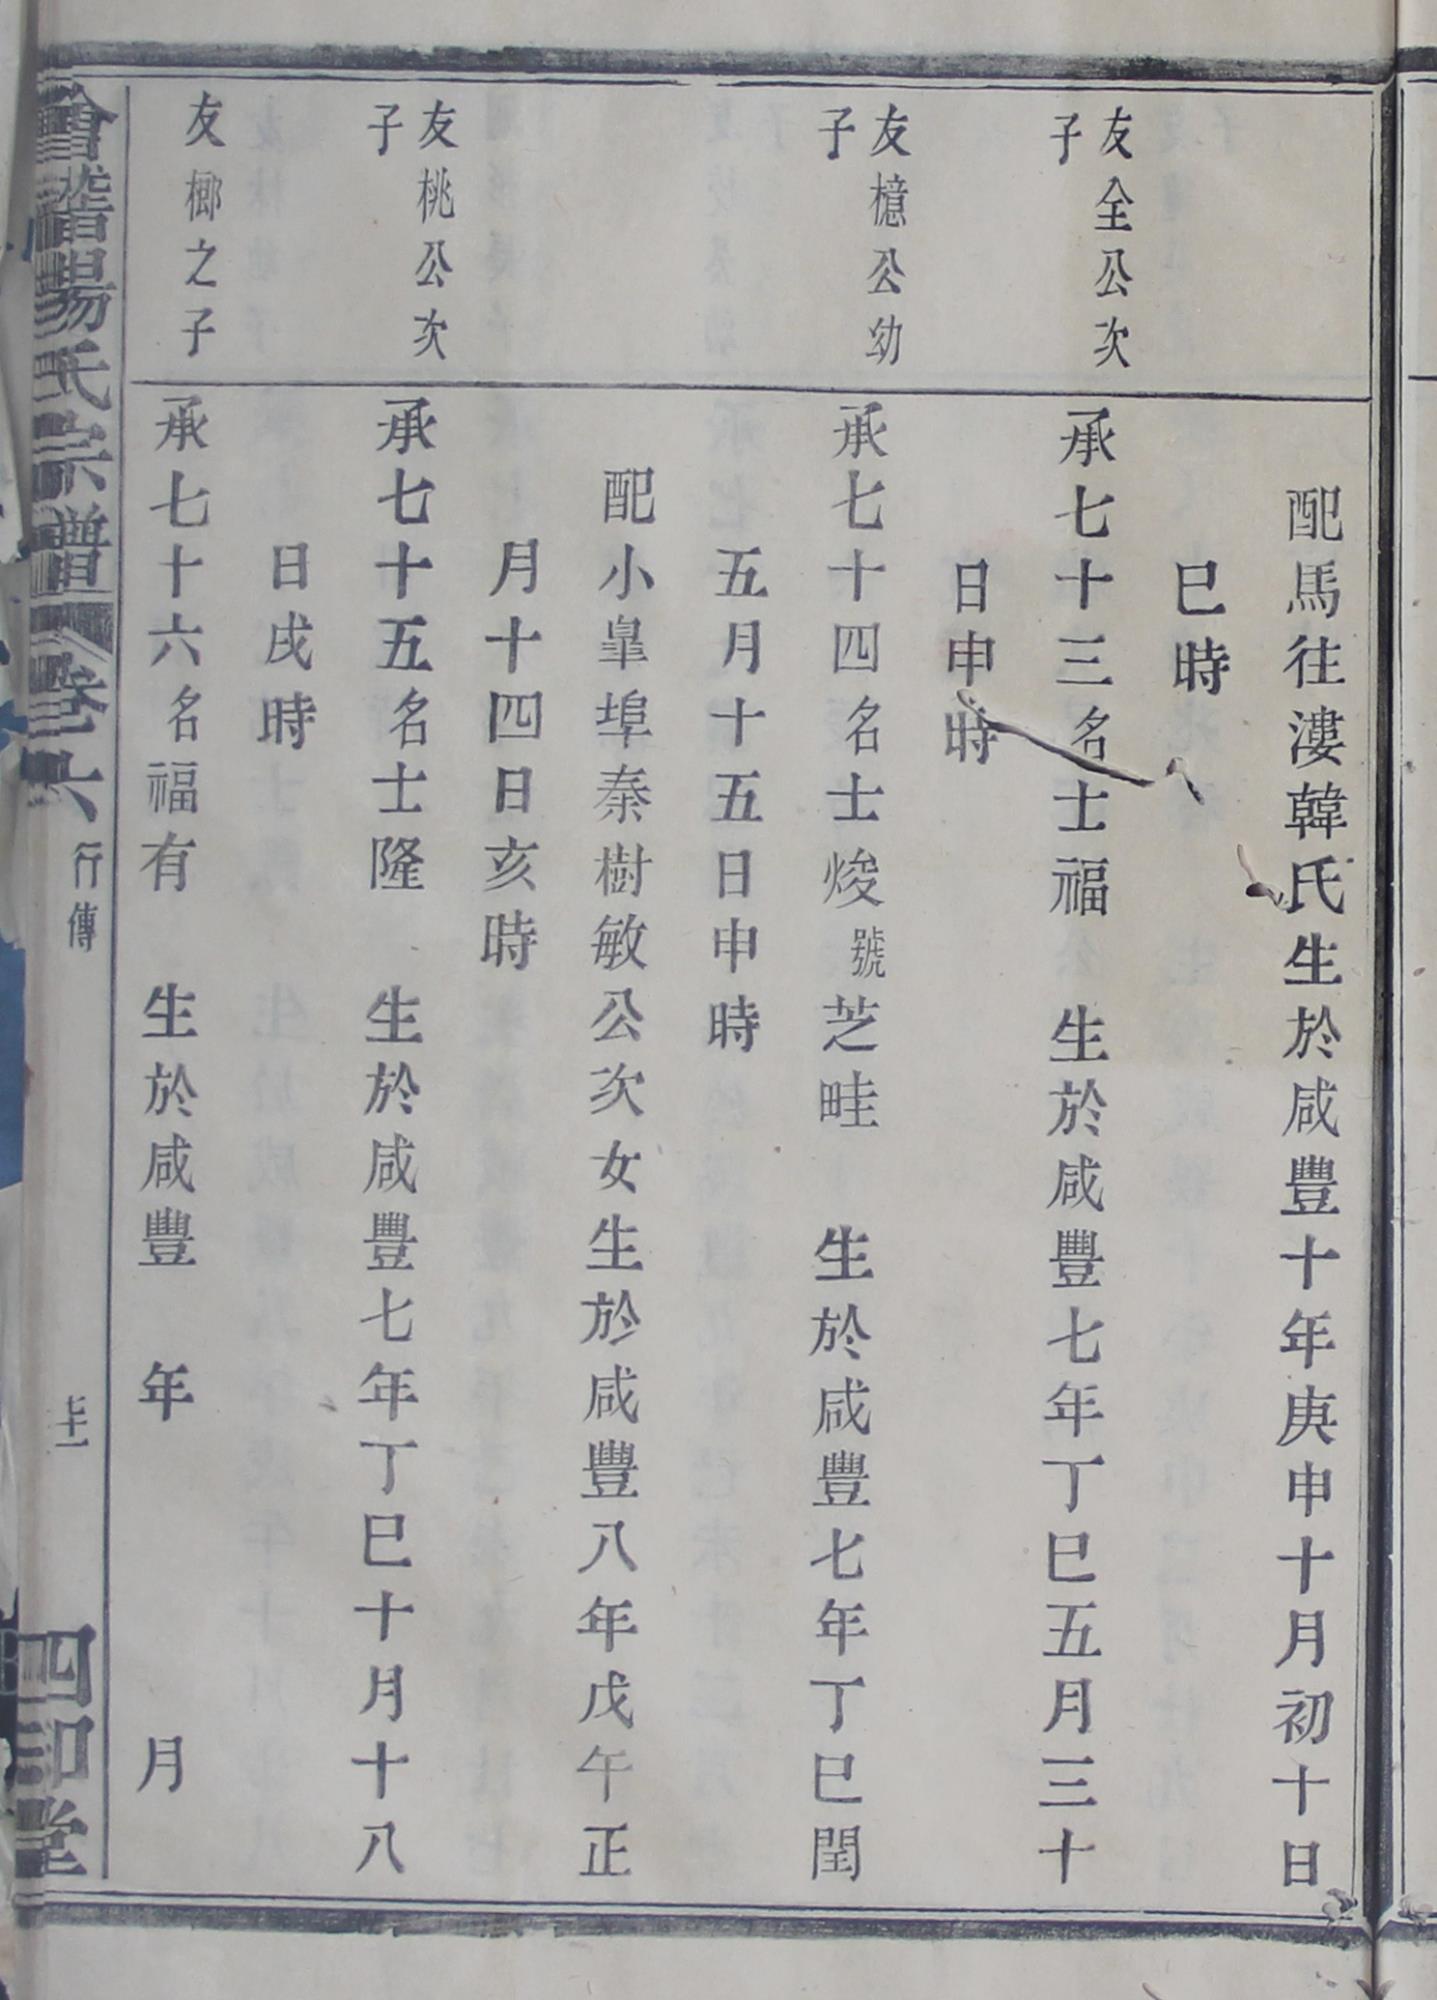 配馬往漊韓氏生於咸豐十年庚申十月初十日
巳時
友全公次
子
承七十三名士福 生於咸豐七年丁巳五月三十
日申時
友檍公幼
子
承七十四名士焌號芝畦 生於咸豐七年丁巳閏
五月十五日申時
配小皐埠秦樹敏公次女生於咸豐八年戊午正
月十四日亥時
友桃公次
子
承七十五名士隆 生於咸豐七年丁巳十月十八
日戌時
友梛之子
承七十六名福有 生於咸豐 年 月
會稽 氏宗譜 卷六 行傳 四印堂